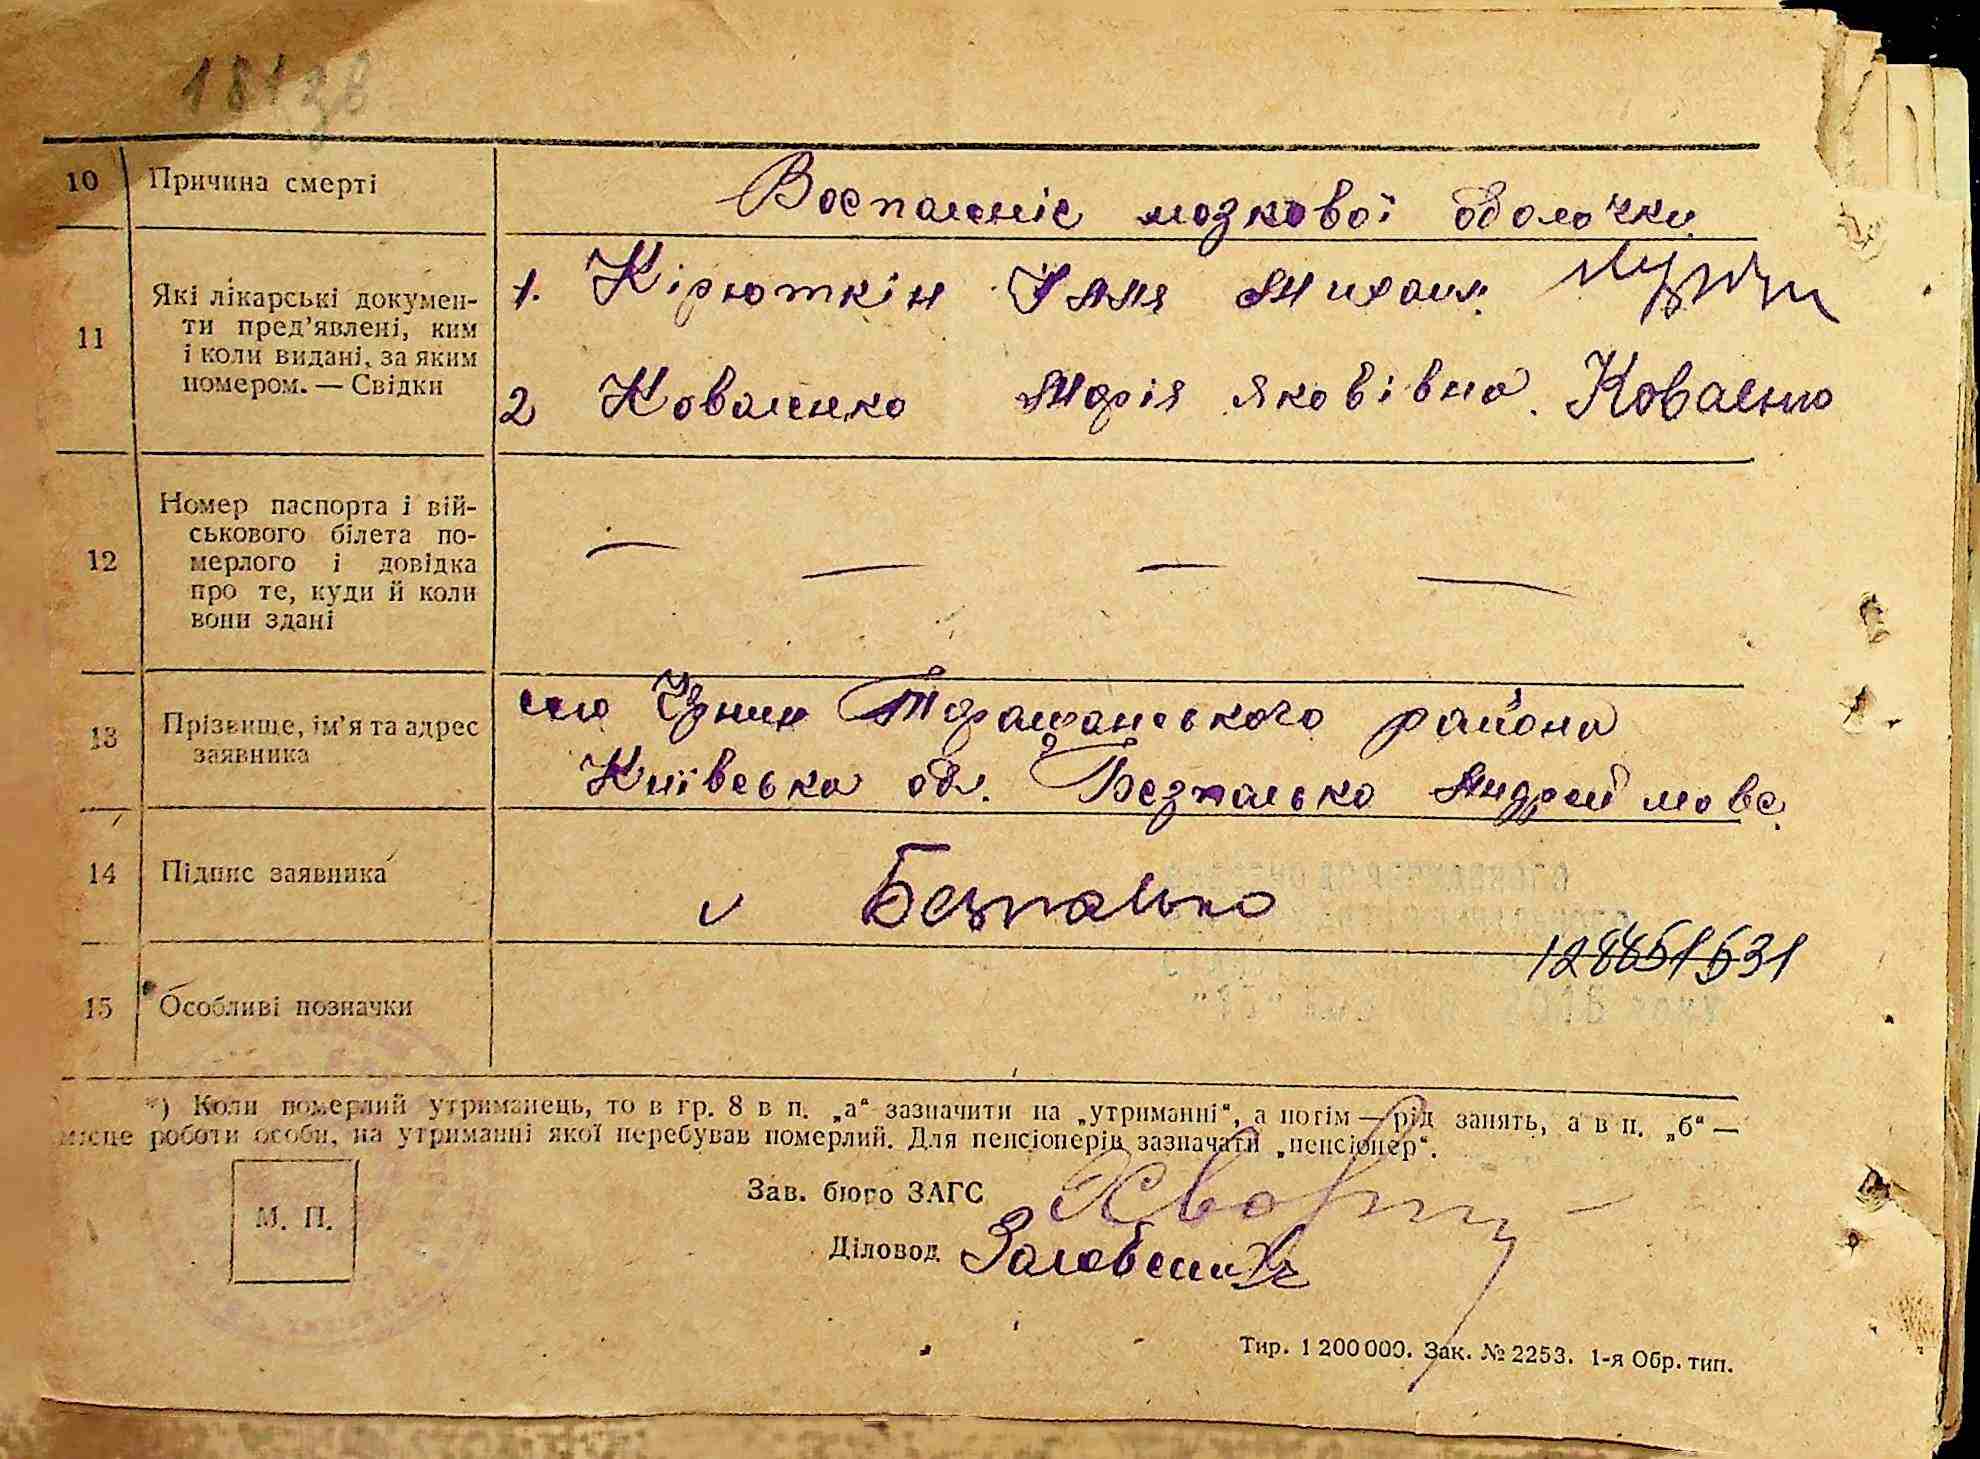 10 Причина смерті Воспаленіє мозкової оболочки
11 Які лікарські докумен-
ти пред'явлені, ким
і коли видані, за яким
номером. — Свідки
1. Кірюткін Ілля Михаил.
2 Коваленко Марія Яковівна. Коваленко
12 Номер паспорта і вій-
ськового білета по-
мерлого і довідка
про те, куди й коли
вони здані
— — — —
13 Прізвище, ім'я та адрес
заявника
село Таращанського района
Київська обл. Безпалько Андрей мовс.
14 Підпис заявника v Безпалько
15 Особливі позначки
*) Коли померлий утриманець, то в гр. 8 в п. „а“ зазначити на „утриманні“, а потім — рід занять, а в п. „б“ —
місце роботи особи, на утриманні якої перебував померлий. Для пенсіонерів зазначати „пенсіонер“.
М. П.
Зав. бюро ЗАГС
Діловод
Тир. 1 200 000. Зак. № 2253. 1-я Обр. тип.